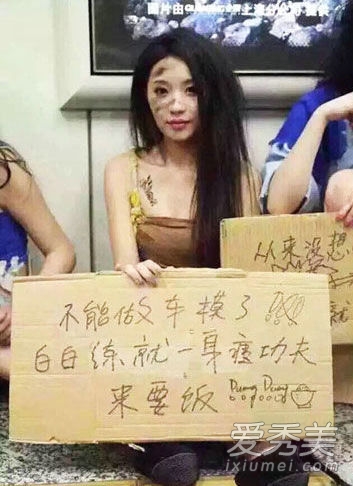 图片由 上海分公司 提供
不能做车模了
白白练就一身瘦功夫
来要饭 Duang Duang
从来没想
就
爱秀美
ixiumei.com